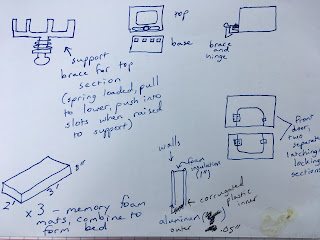 top
base
brace and
hinge
support
brace for top
section
(spring loaded, pull
to lower, push into
slots when raised
to support)
front
door,
two separate
latching/
locking
sections
walls
foam
insulation
(1")
corrugated
plastic
inner
aluminum
outer
.05"
8"
3'
2'
x 3 - memory foam
mats, combine to
form bed